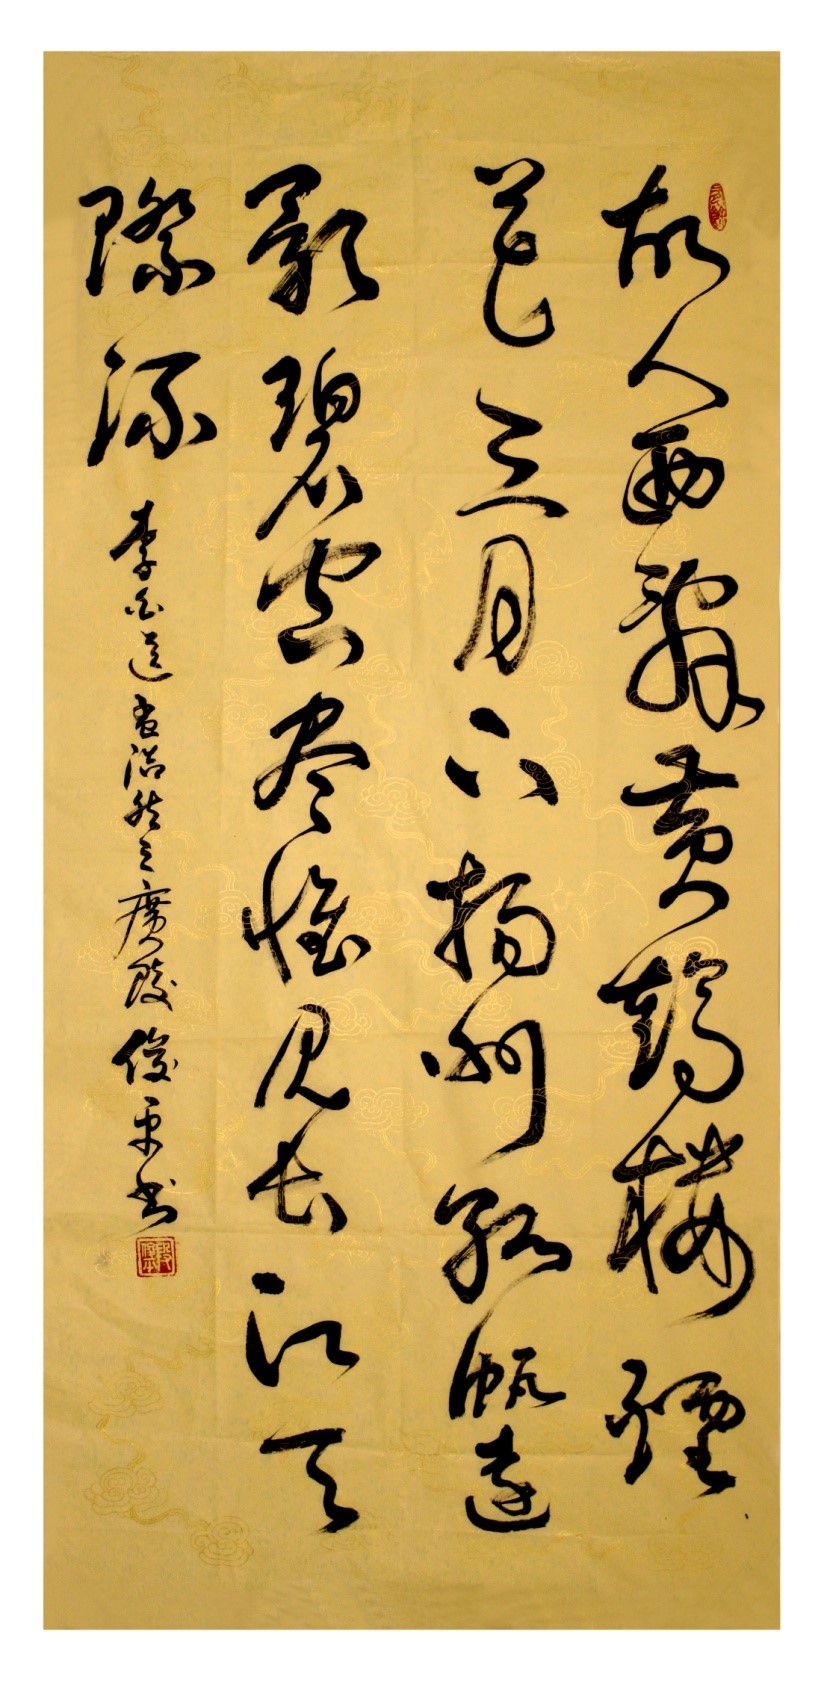 故人西辞黄鹤楼烟
花三月下扬州孤帆远
影碧空尽惟见长江天
际流
李白送孟浩然之廣陵俊平书